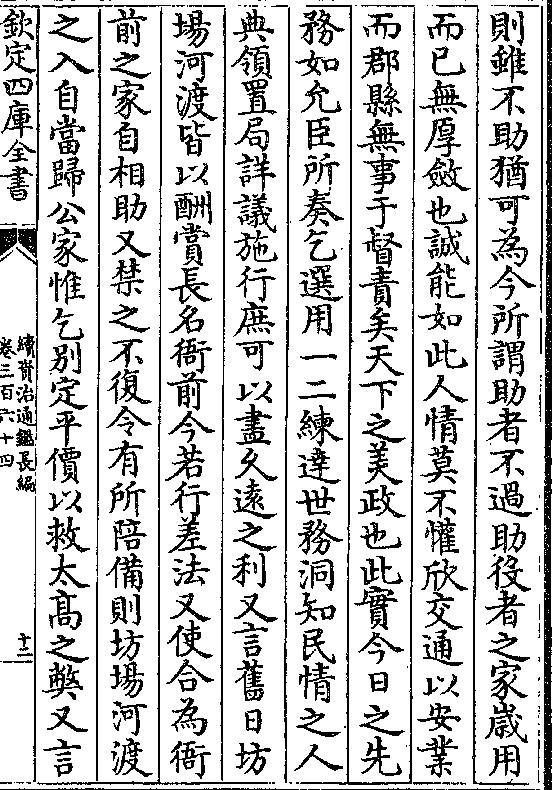 則雖不助猶可為今所謂助者不過助役者之家歲用
而已無厚斂也誠能如此人情莫不懽欣交通以安業
而郡縣無事于督責矣天下之美政也此實今日之先
務如允臣所奏乞選用一二練達世務洞知民情之人
典領置局詳議施行庶可以盡乆遠之利又言舊日坊
場河渡皆以酬賞長名衙前今若行差法又使合為衙
前之家自相助又禁之不復令有所陪備則坊場河渡
之入自當歸公家惟乞别定平價以救太髙之獘又言
欽定四庫全書
續資治通鑑長編
卷三百六十四
十二